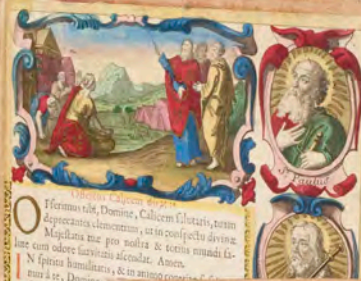 Offerens Calicem dicat.
OFferimus tibi, Domine, Calicem salutaris, tuam
deprecantes clementiam, ut in conspectu divinæ
Majestatis tuæ pro nostra & totius mundi sa-
lute cum odore suavitatis ascendat. Amen.
IN spiritu humilitatis, & in animo
mur à te, Domine